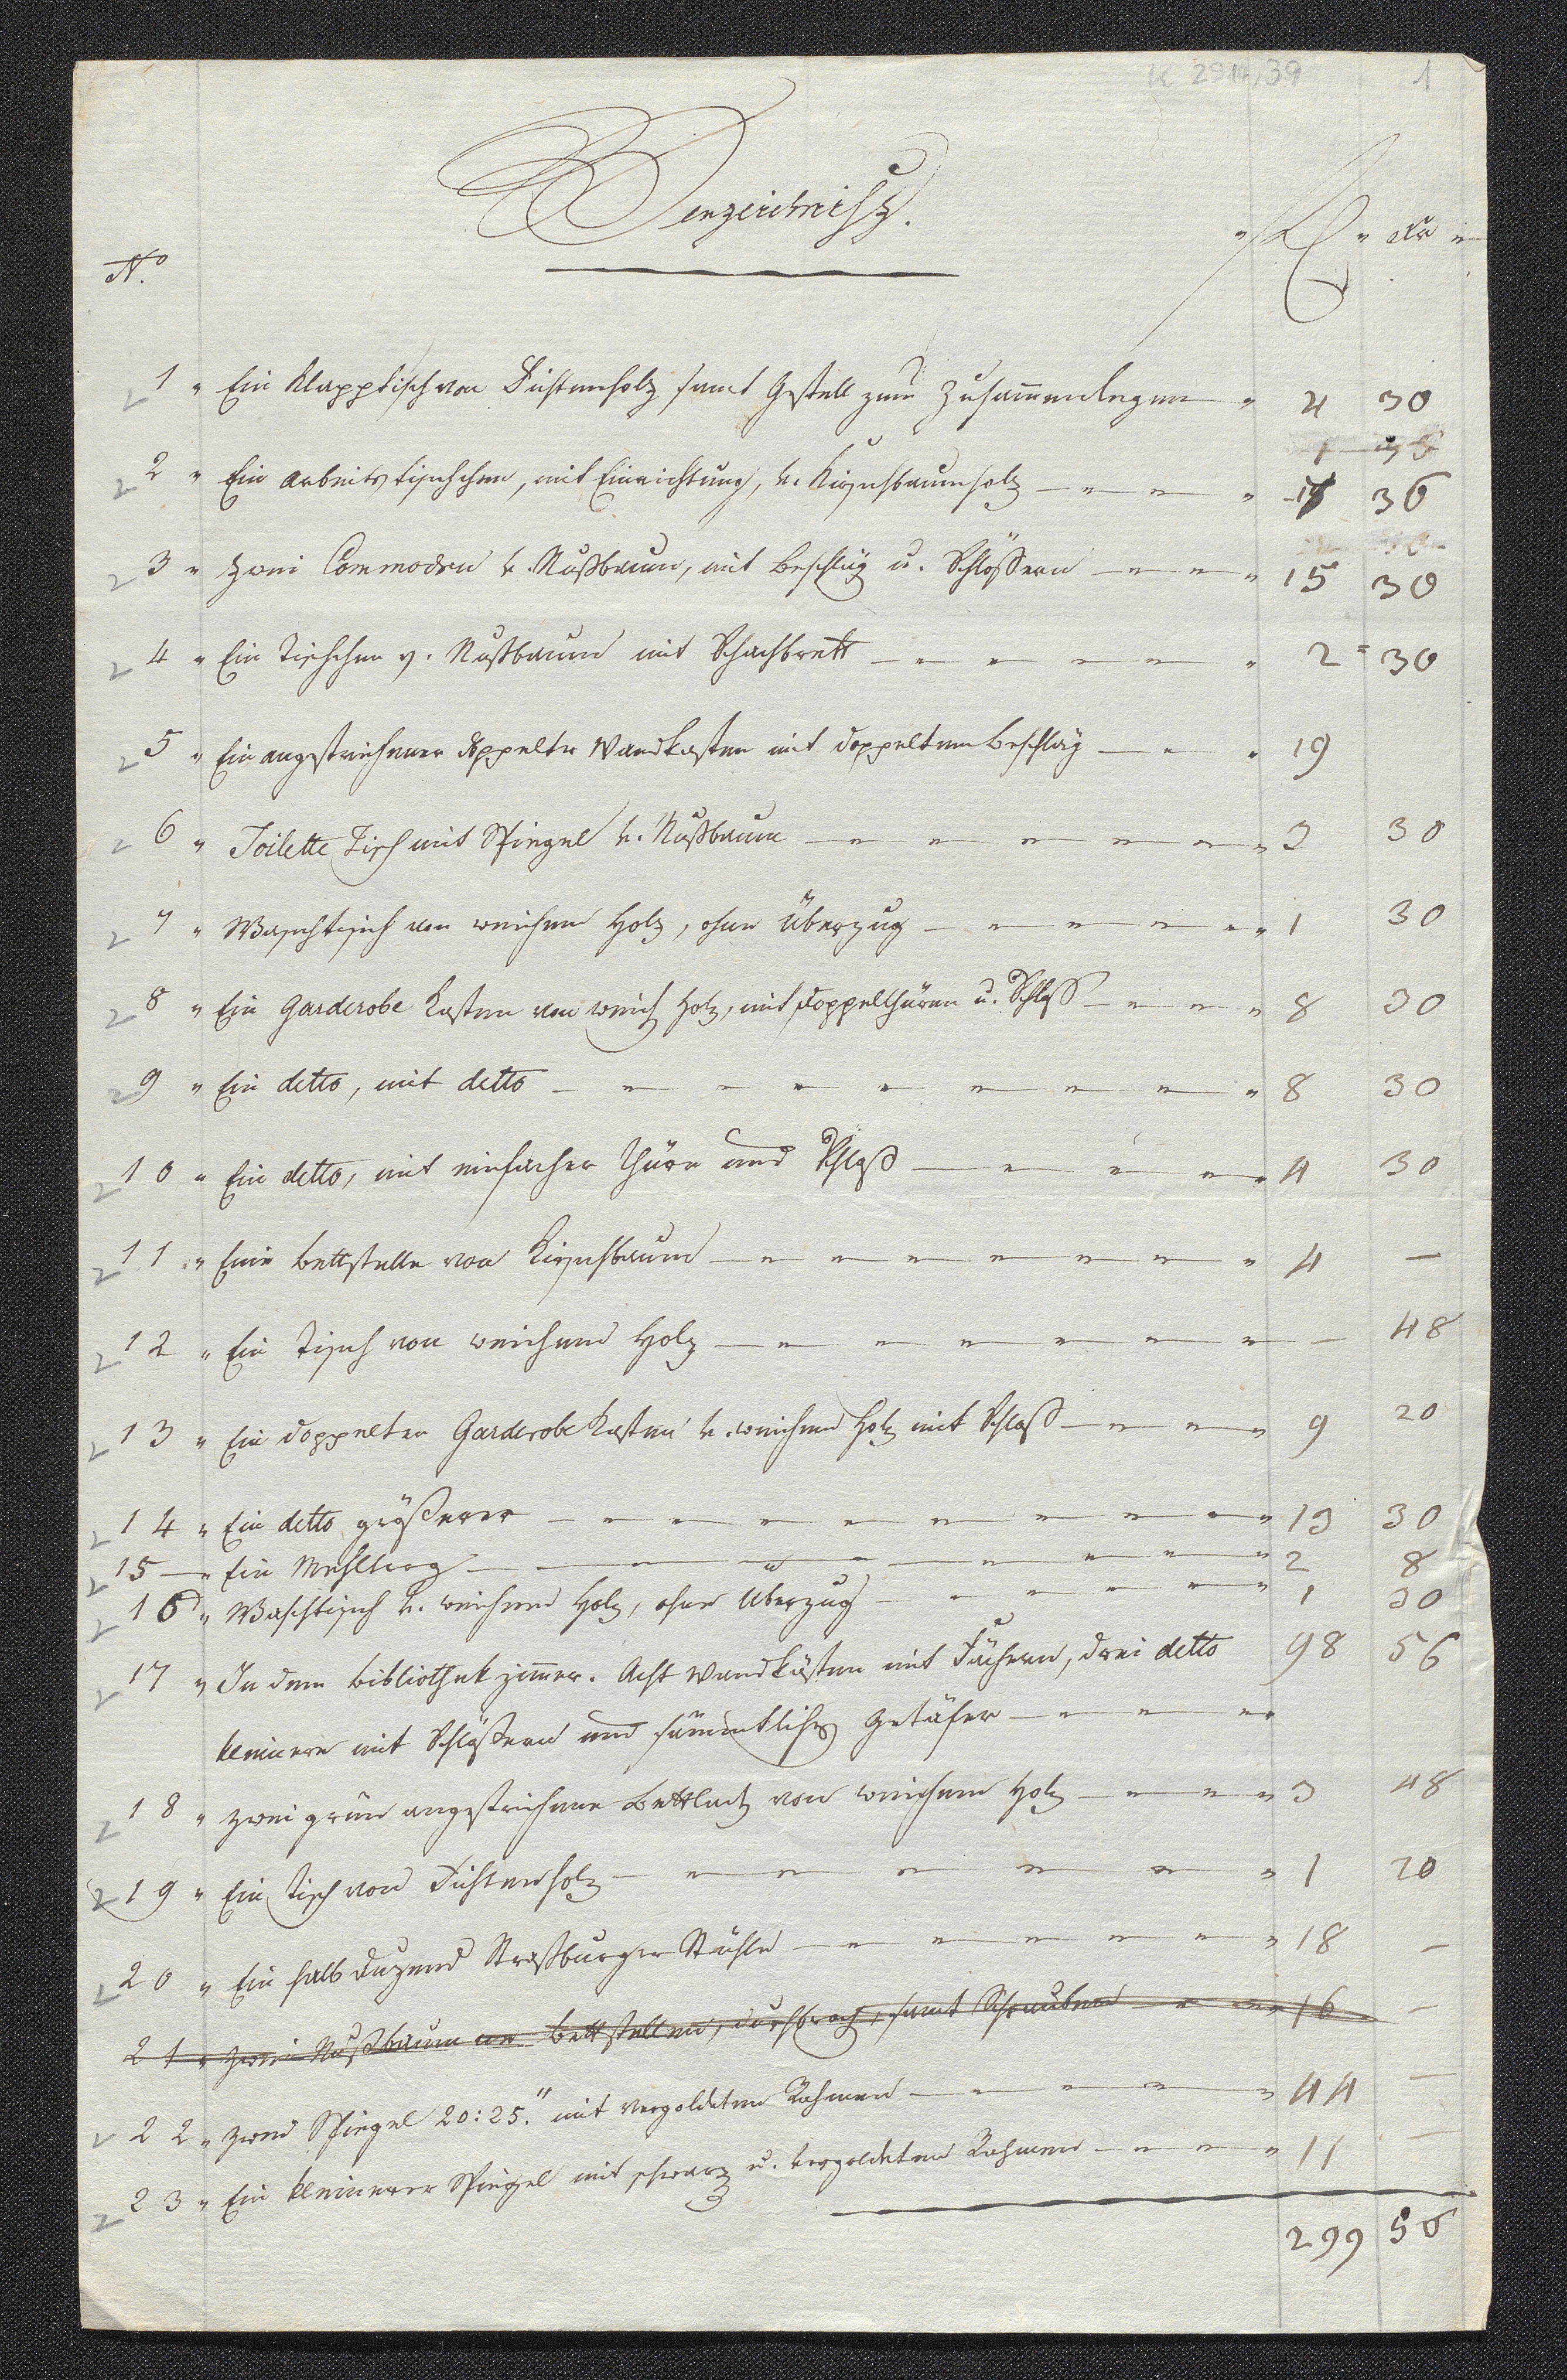 K 2914,39 1
Verzeichnisz.
No. " fl " Xr "
1 " Ein Klapptisch von Fichtenholz samt Gestell zum Zusam̄enlegen " 4 30
2 " Ein Arbeitstischchen, mit Einrichtung, v. Kirschbaumholz — " — " — " 17 36
3 " Zwei Commoden v. Nußbaum, mit Beschläg u. Schlössern — " — " — " 15 30
4 " Ein Tischchen v. Nußbaum mit Schachbrett — " — " — " — " — " 2 = 30
5 " Ein angestrichener doppelter Wandkasten mit doppeltem Beschläg — " — " 19
6 " Toilette Tisch mit Spiegel v. Nußbaum — " — " — " — " — " — " 3 30
7 " Waschtisch von weichem Holz, ohne Überzug — " — " — " — " " 1 30
8 " Ein Garderobe Kasten von weich Holz, mit Doppelthüren u. Schloß — " — " — " 8 30
9 " Ein detto, mit detto — " — " — " — " — " — " — " — " — " 8 30
10 " Ein detto, mit einfacher Thüre und Schloß — " — " — " " 4 30
11 " Eine Bettstelle von Kirschbaum — " — " — " — " — " — " — " 4 —
12 " Ein Tisch von weichem Holz — " — " — " — " — " — " — 48
13 " Ein doppelter Garderobe Kasten v. weichem Holz mit Schloß — " — " — " 9 20
14 " Ein detto größerer — " — " — " — " — " — " — " — " — " 13 30
15 — " Ein Mehltrog — " — " — " — " — " — " — " 2 8
16 " Waschtisch v. weichem Holz, ohne Überzug — " — " — " — " — " 1 30
17 " In dem Bibliothekzim̄er. Acht Wandkästen mit Fächern, drei detto 98 56
kleinere mit Schlößern und sämmtliches Getäfer — " — " — " "
18 " Zwei grün angestrichene Bettlad von weichem Holz — " — " — " 3 48
19 " Ein Tisch von Fichtenholz — " — " — " — " — " — " 1 20
20 " Ein halb Duzend Straßburger Stühle — " — " — " — " — " — " 18 —
21 " Zwei Nußbaumene Bettstellen, durchbroch, samt Schrauben — " — " 16 —
22 " Zwei Spiegel 20:25." mit vergoldeten Rahmen — " — " — " — " 44 —
23 " Ein kleinerer Spiegel mit schwarz u. vergoldeten Rahmen — " — " — " 11 —
299 56